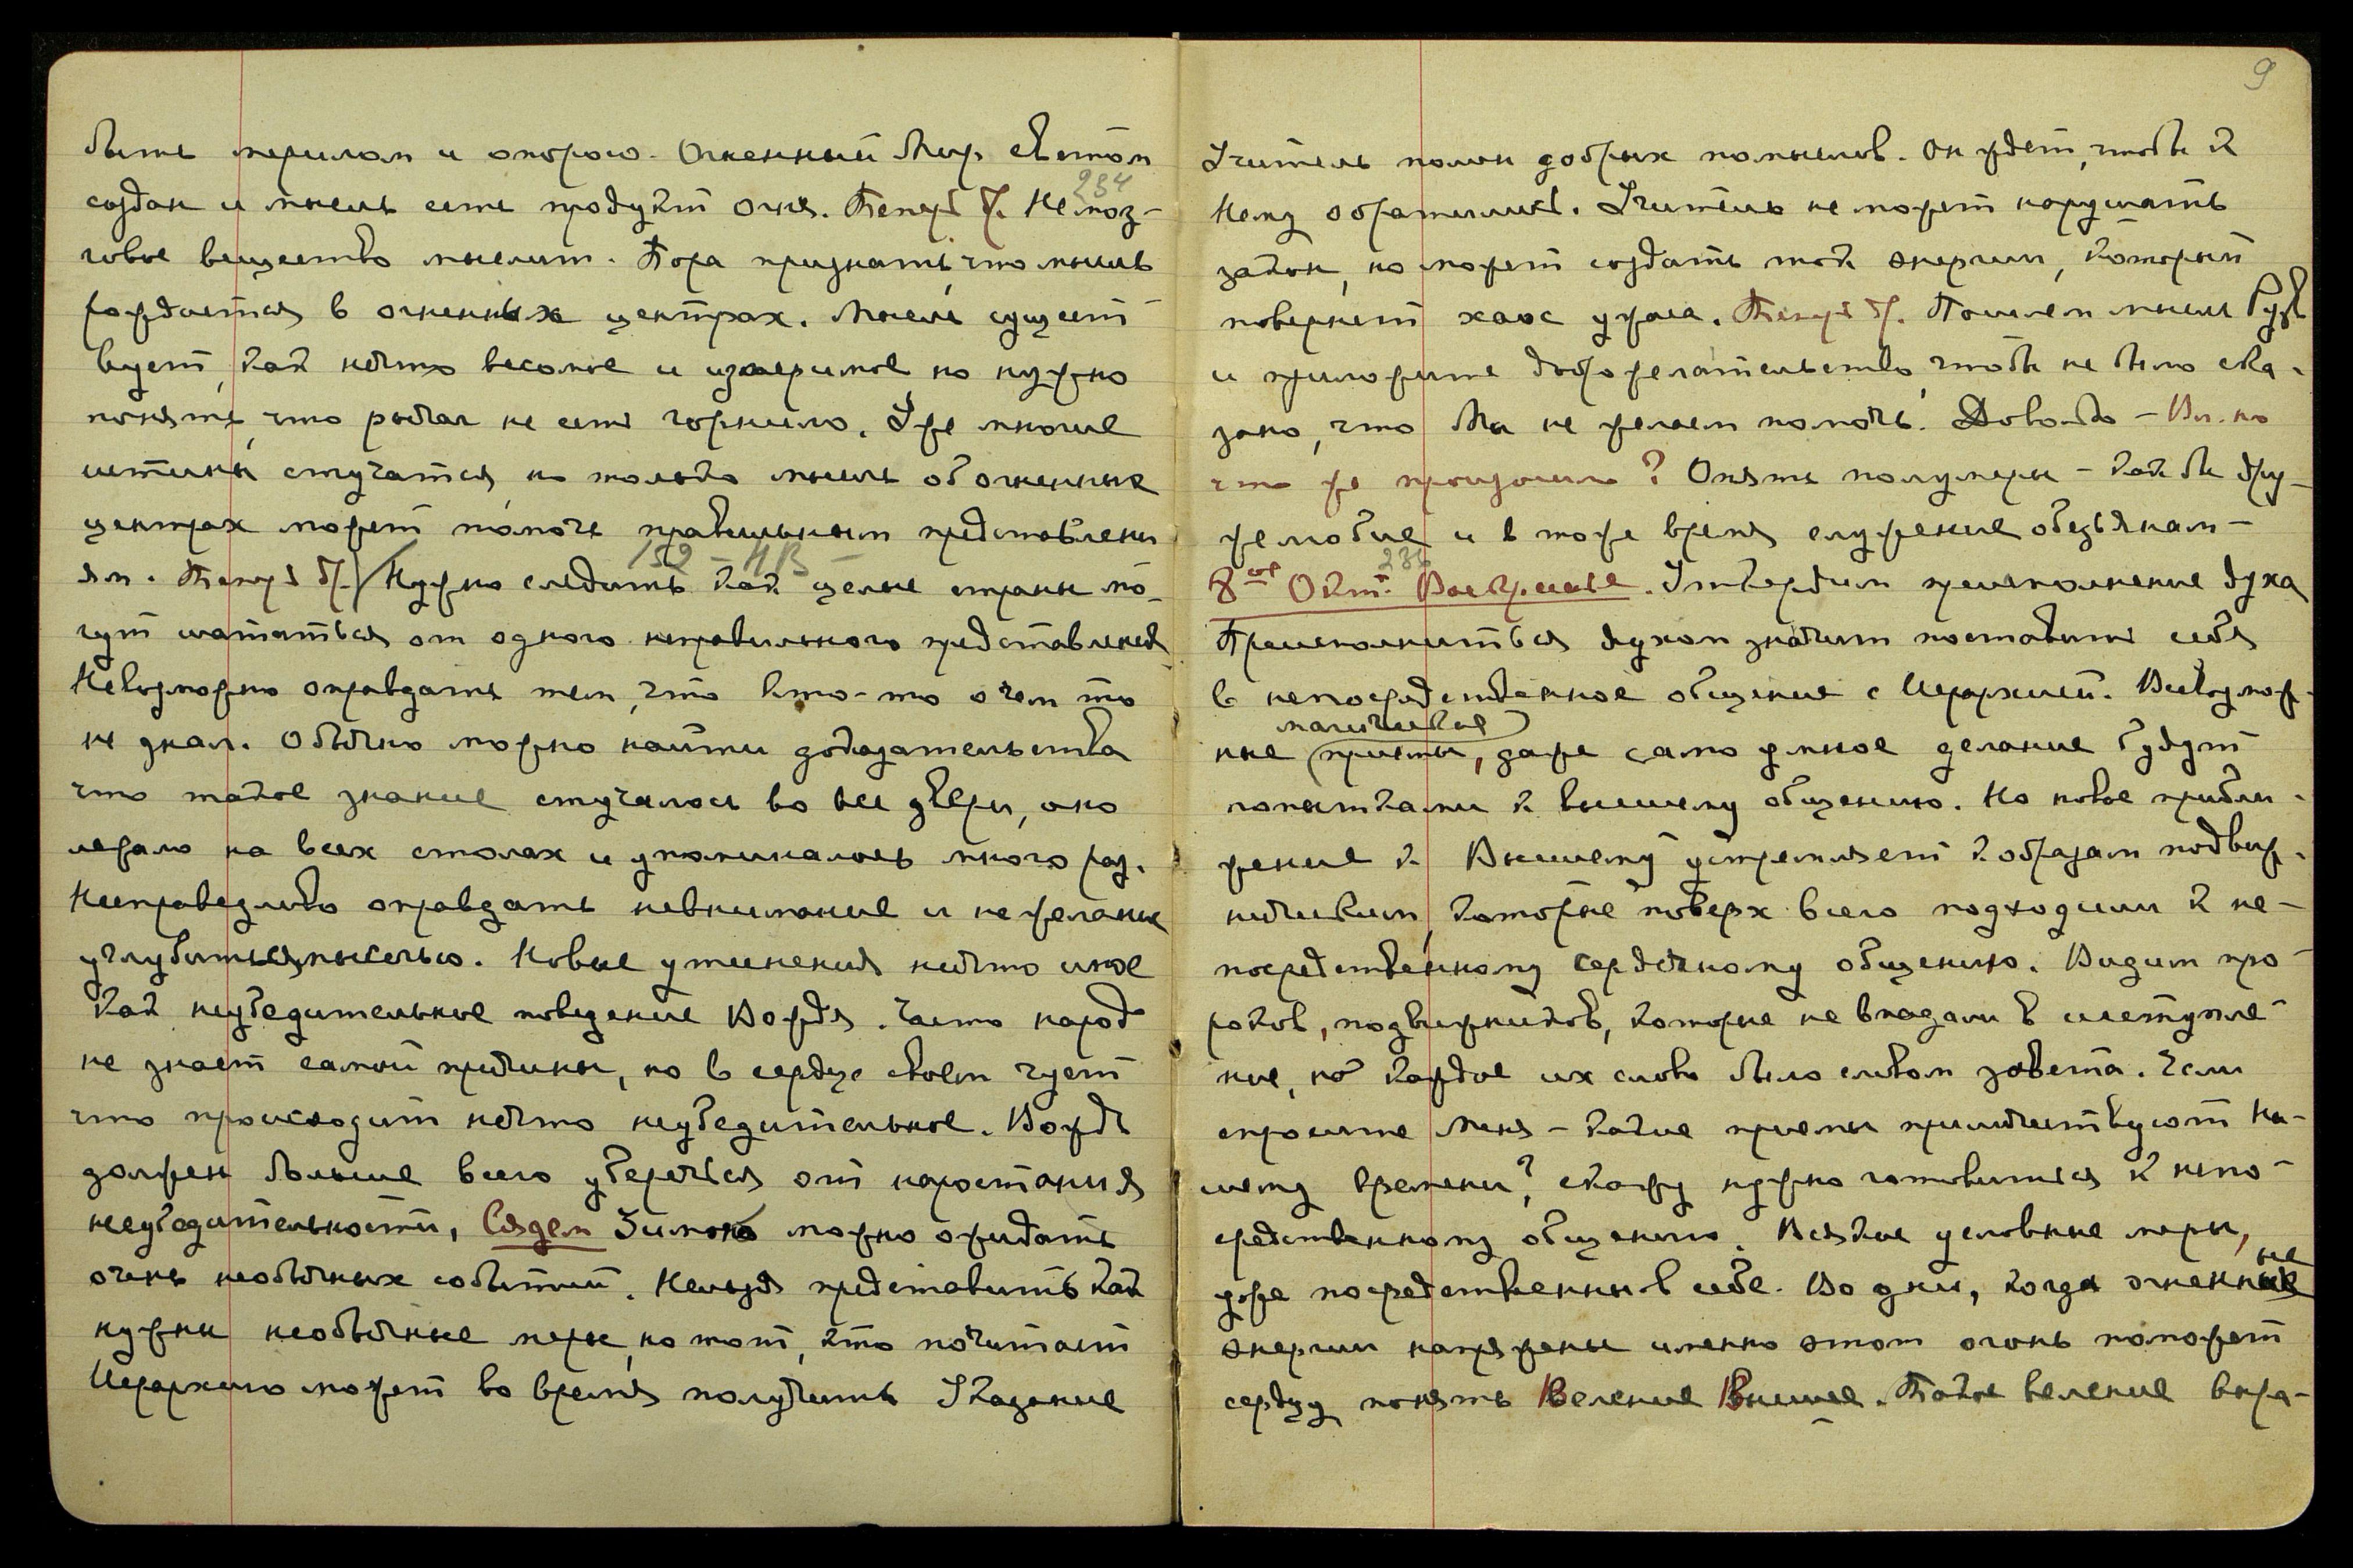 быть мерилом и опорою. Огненный Мир Светом
234
создан и мысль есть продукт огня. Теперь др. Не моз-
говое вещество мыслит. Пора признать, что мысль
рождается в огненных центрах. Мысль сущест
вует, как нечто весомое и измеримое, но нужно
понять, что рычаг не есть горнило. Уже многие
истины стучатся, но только мысль об огненных
центрах может помочь правильным представлени
152 – НВ –
ям. Теперь др. Нужно следить как целые страны мо-
гут шататься от одного неправильного представления
Невозможно оправдать тем, что кто-то о чем то
не знал. Обычно можно найти доказательства
что такое знание стучалось во все двери, оно
лежало на всех столах и упоминалось много раз.
Несправедливо оправдать невнимание и нежелание
углубиться мыслью. Новые утеснения нечто иное
как неубедительное поведение Вождя. Часто народ
не знает самой причины, но в сердце своем чует
что происходит нечто неубедительное. Вождь
должен больше всего уберечься от нарастания
неубедительности, Сядем Зимою можно ожидать
очень необычных событий. Нельзя представить как
нужны необычные меры, но тот, кто почитает
Иерархию может во время получить Указание
9
Учитель полон добрых помыслов. Он ждет, чтобы к
Нему обратились. Учитель не может нарушать
закон, но может создать ток энергии, который
повернет хаос ужаса. Теперь др. Пошлем мысль Рузв
и приложите доброжелательство, чтобы не было ска-
зано, что Мы не желаем помочь. Довольно – Вл. но
что же произошло? Опять полумеры – как бы дру-
желюбие и в тоже время служение обезьянам –
236
8ое Окт. Воскресенье. Утвердим преисполнение духа
Преисполниться духом значит поставить себя
в непосредственное общение с Иерархией. Всевозмож
магические
ные приемы, даже само умное делание будут
попытками к высшему общению. Но новое прибли-
жение к Высшему устремляет к образам подвиж-
ническим, которые поверх всего подходили к не-
посредственному сердечному общению. Видим про
роков, подвижников, которые не впадали в исступле
ние, но каждое их слово было словом завета. Если
спросите Меня – какие приемы приличествуют На-
шему времени? скажу нужно готовиться к непо-
средственному общению. Всякие условные меры,
уже посредственны в себе. Во дни, когда огненные
энергии напряжены именно этот огонь поможет
сердцу понять Веление Высшее. Такое веление выра-